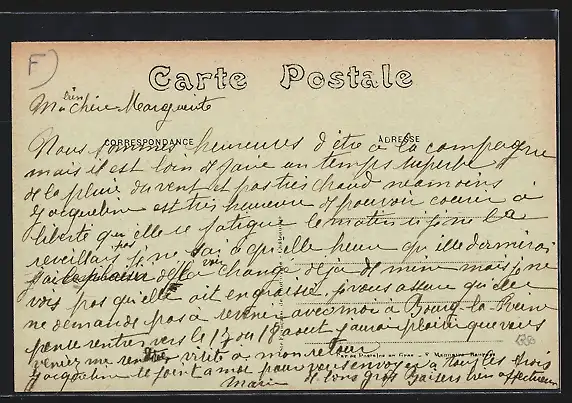 F
Carte Postale
bien
Ma chère Marguerite
CORRESPONDANCE
ADRESSE
Nous sommes heureuses d'être à la campagne
mais il est loin de faire un temps superbe
de la pluie du vent et pas très chaud néamoins
Jacqueline est très heureuse de pouvoir courir à
liberté qu'elle se fatigue le matin si je ne la
reveillais pas je ne sai à quelle heure qu'elle dormirai
j'ai de la voir changé déja de mine mais je ne
vois pas qu'elle ait engraissé je vous assure qu'elle
ne demande pas à revenir avec moi à Bourg la Reine
pense rentrer vers le 17 ou 18 aout j'aurai plaisir que vous
veniez me rendre visite à mon retour
Jacqueline se joint a moi pour vous envoyer a tous les trois
de bons gros baisers bien affectueux
Marie